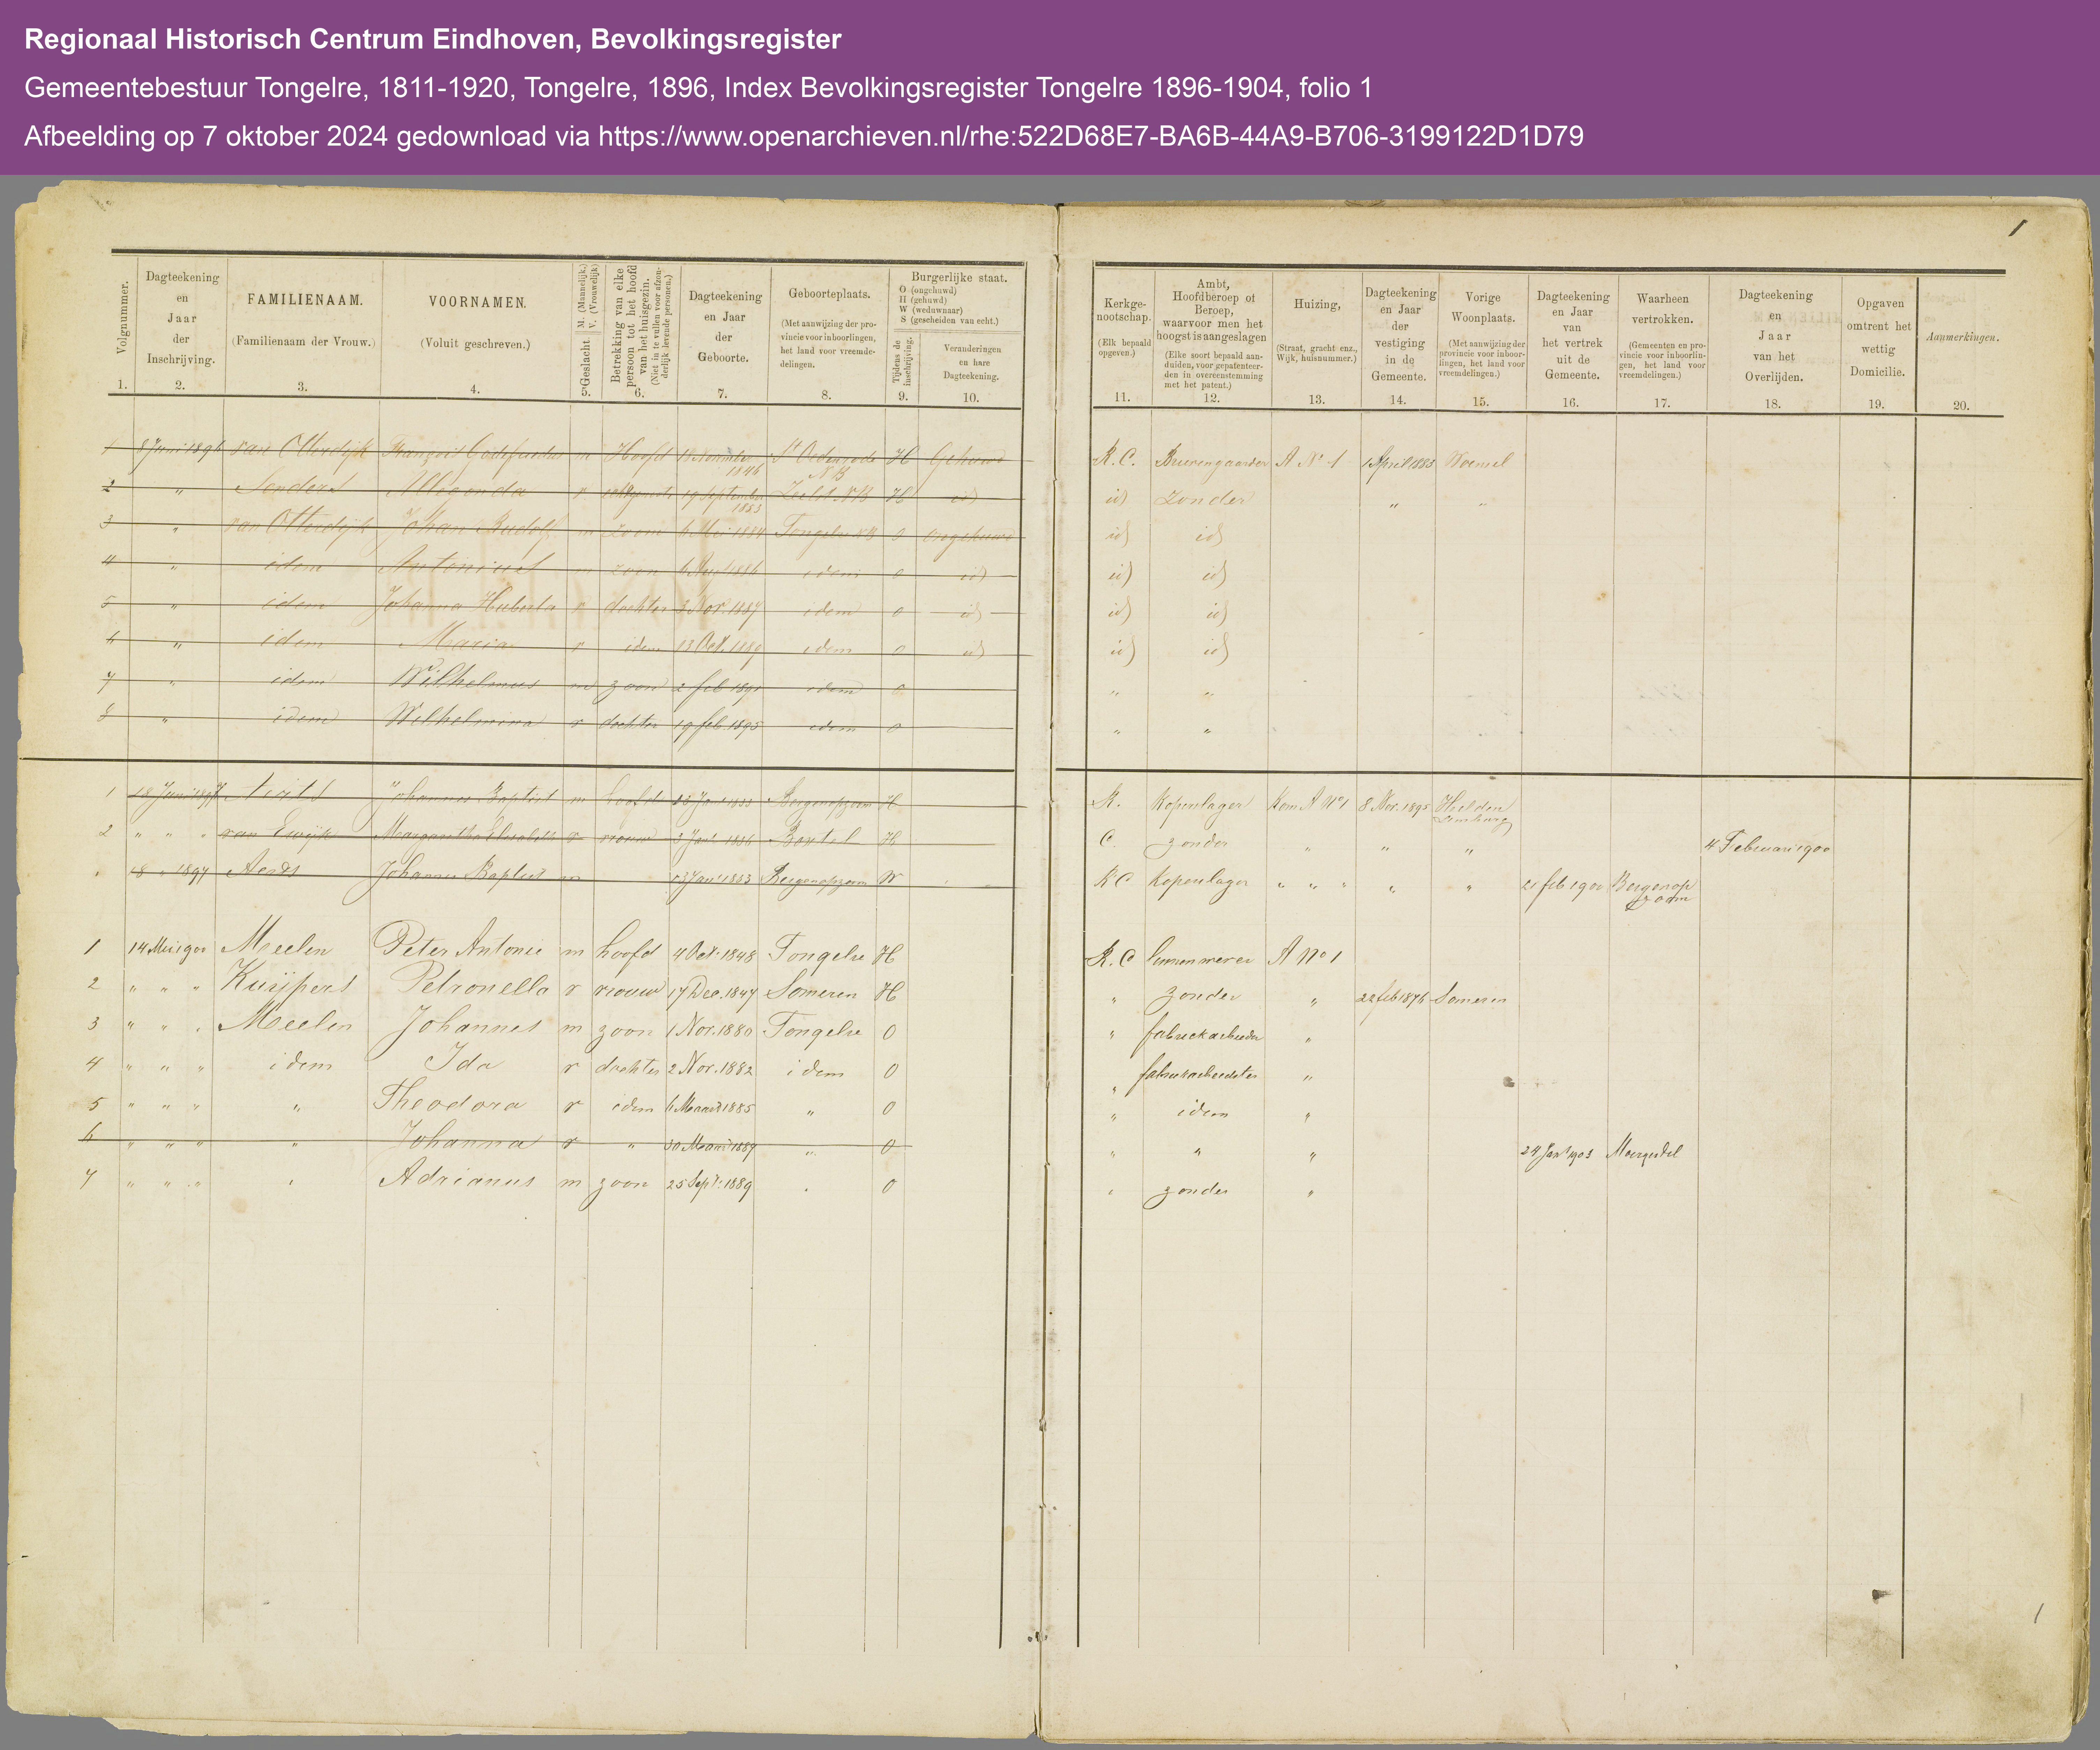 Regionaal Historisch Centrum Eindhoven, Bevolkingsregister
Gemeentebestuur Tongelre, 1811-1920, Tongelre, 1896, Index Bevolkingsregister Tongelre 1896-1904, folio 1
Afbeelding op 7 oktober 2024 gedownload via https://www.openarchieven.nl/rhe:522D68E7-BA6B-44A9-B706-3199122D1D79
1
Volgnummer. 1.
Dagteekening en Jaar der Inschrijving. 2.
FAMILIENAAM. (Familienaam der Vrouw.) 3.
VOORNAMEN. (Voluit geschreven.) 4.
Geslacht. M. (Mannelijk.) V. (Vrouwelijk) 5.
Betrekking van elke persoon tot het hoofd van het huisgezin. (Niet in te vullen voor afzonderlijk levende personen.) 6.
Dagteekening en Jaar der Geboorte. 7.
Geboorteplaats. (Met aanwijzing der provincie voor inboorlingen, het land voor vreemdelingen. 8.
Burgerlijke staat. O (ongehuwd) H (gehuwd) W (weduwnaar) S (gescheiden van echt.)
Tijdens de inschrijving. 9.
Veranderingen en hare Dagteekening. 10.
Kerkgenootschap. (Elk bepaald opgeven.) 11.
Ambt, Hoofdberoep of Beroep, waarvoor men het hoogst is aangeslagen (Elke soort bepaald aanduiden, voor gepatenteerden in overeenstemming met het patent.) 12.
Huizing, (Straat, gracht enz., Wijk, huisnummer.) 13.
Dagteekening en Jaar der vestiging in de Gemeente. 14.
Vorige Woonplaats. (Met aanwijzing der provincie voor inboorlingen, het land voor vreemdelingen.) 15.
Dagteekening en Jaar van het vertrek uit de Gemeente. 16.
Waarheen vertrokken. (Gemeenten en provincie voor inboorlingen, het land voor vreemdelingen.) 17.
Dagteekening en Jaar van het Overlijden. 18.
Opgaven omtrent het wettig Domicilie. 19.
Aanmerkingen. 20.
1 8 Juni 1896 van Otterdijk m Hoofd November 1846 St Oedenrode NB H Gehuwd R.C. A No 1 1 April 1883 Woensel
2 " Senders Alligonda v 19 September 1853 NB H id id Zonder " "
3 " van Otterdijk Johan Rudolf m zoon 6 Mei 1884 Tongelre NB o ongehuwd id id
4 " idem Antonius m zoon 1886 idem o id id id
5 " idem Johanna Huberta v dochter 3 Nov. 1887 idem o id id id
6 " idem Maria v idem 13 Oct. 1889 idem o id id id
7 " idem Wilhelmus m zoon 2 feb 1891 idem o " "
8 " idem Wilhelmina v dochter 19 feb. 1895 idem o " "
1 18 Juni 1897 Johannes Baptist m hoofd 1833 Bergenopzoom H R. Kopenslager Kom A No 1 8 Nov. 1895 Helden Limburg
2 " " " van Ewijk v vrouw 3 Jan 1836 Boxtel H C. zonder " " " 4 Februari 1900
18 " 1897 Johannes Baptist m Jan 1833 Bergenopzoom W RC Kopenslager " " " " " 21 feb 1900 Bergenop zoom
1 14 Mei 1900 Meelen Peter Antonie m hoofd 4 Oct. 1848 Tongelre H R.C linnenwever A No 1
2 " " " Kuijpers Petronella v vrouw 17 Dec. 1847 Someren H " zonder " 22 feb 1876 Someren
3 " " " Meelen Johannes m zoon 1 Nov. 1880 Tongelre O " fabriekarbeider "
4 " " " idem Ida v dochter 2 Nov. 1882 idem O " fabriekarbeidster "
5 " " " " Theodora v idem 6 Maart 1885 " O " idem "
6 " " " " Johanna v " 30 Maart 1887 " O " " " 24 Jan 1903 Moergestel
7 " " " " Adrianus m zoon 25 Sept. 1889 " O " zonder "
1